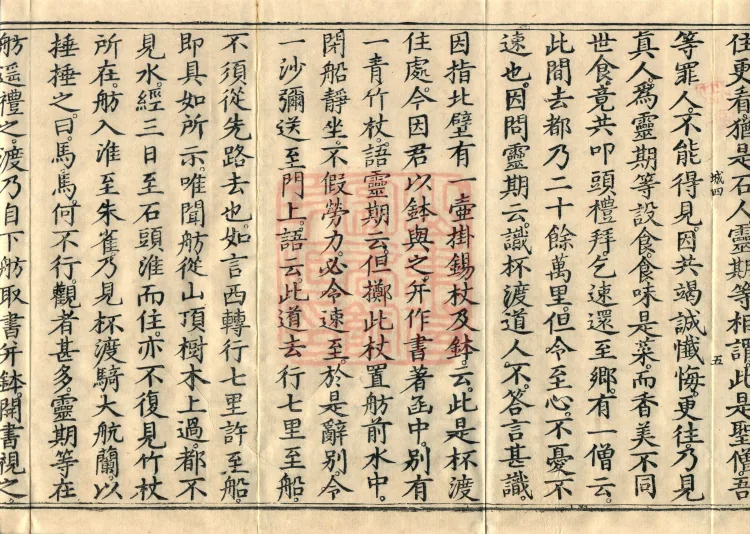 住更看猶是石人靈期等相謂此是聖僧吾
等罪人不能得見因共竭誠懺悔更往乃見
真人為靈期等設食食味是菜而香美不同
世食竟共叩頭禮拜乞速還至鄉有一僧云
此間去都乃二十餘萬里但令至心不憂不
速也因問靈期云識杯渡道人不答言甚識
因指北壁有一壷掛錫杖及鉢云此是杯渡
住處今因君以鉢與之并作書著函中別有
一青竹杖語靈期云但擲此杖置舫前水中
閉船靜坐不假勞力必令速至於是辭別令
一沙彌送至門上語云此道去行七里至船
不須從先路去也如言西轉行七里許至船
即具如所示唯聞舫從山頂樹木上過都不
見水經三日至石頭淮而住亦不復見竹杖
所在舫入淮至朱雀乃見杯渡騎大航蘭以
捶捶之曰馬馬何不行觀者甚多靈期等在
舫遥禮之渡乃自下舫取書并鉢開書視之
城四
五